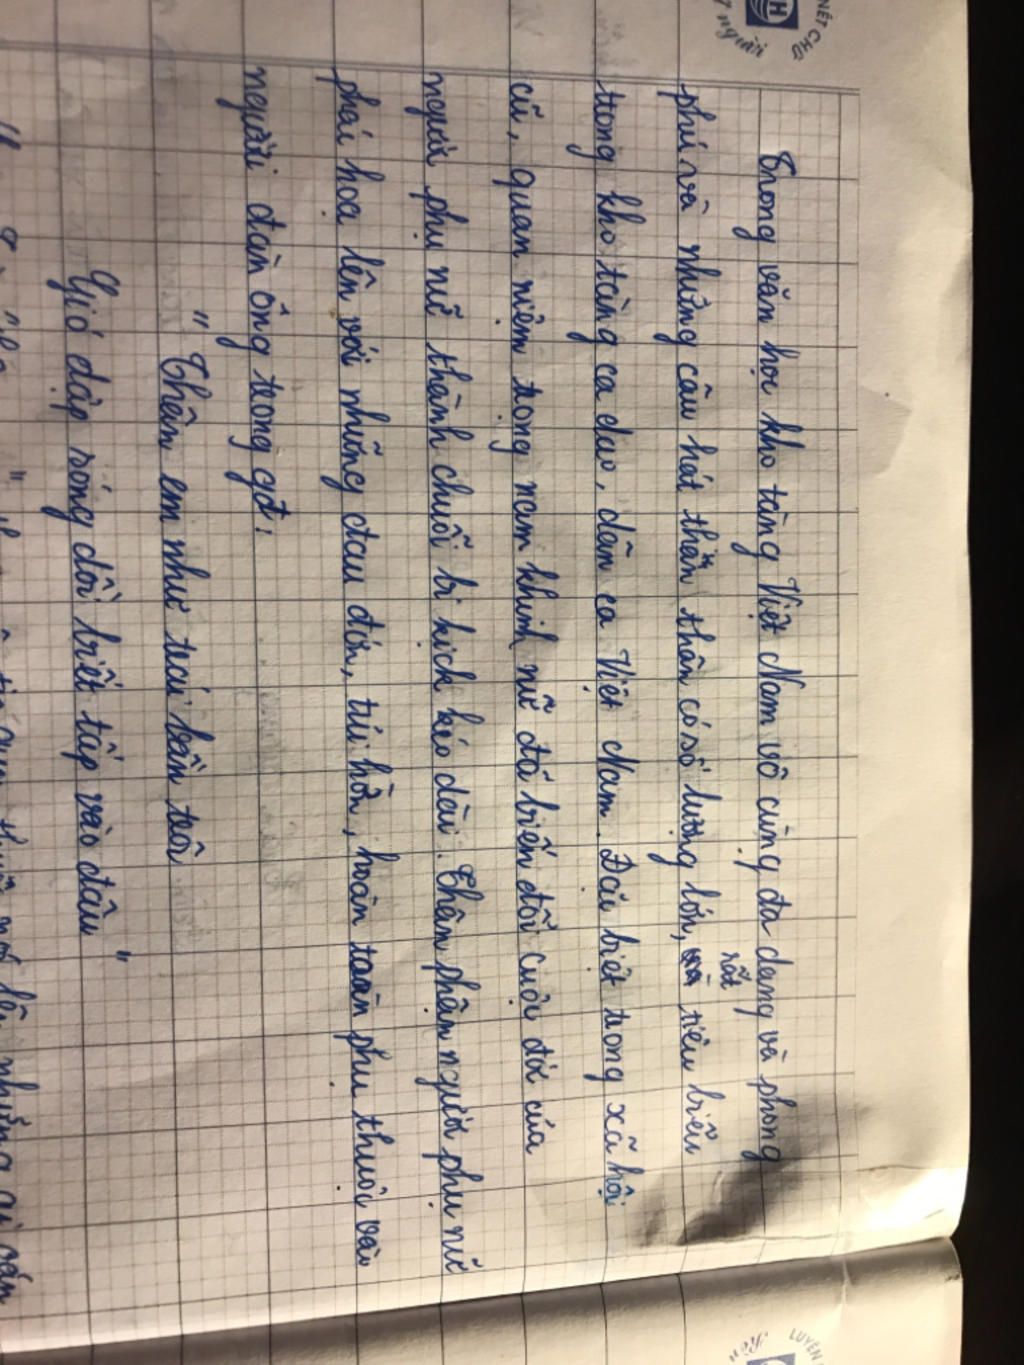 NÉT CHỮ
người
Trong văn học kho tàng Việt Nam vô cùng đa dạng và phong
phú và những câu hát than thân có số lượng lớn, rất tiêu biểu
trong kho tàng ca dao, dân ca Việt Nam. Đặc biệt trong xã hội
cũ, quan niệm trọng nam khinh nữ đã biến đổi cuộc đời của
người phụ nữ thành chuỗi bi kịch kéo dài. Thân phận người phụ nữ
phải họa lên với những đau đớn, tủi hờn, hoàn toàn phụ thuộc vào
người đàn ông trong gđ:
" Thân em như trái bần trôi
Gió dập sóng dồi biết tấp vào đâu "
LUYỆN